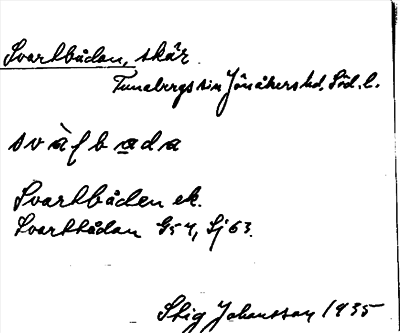 Svartbådan, skär
Tunabergs sn Jönåkers hd. Söd. l.
svàʃbada
Svartbåden ek.
Svartbådan G54, Sj 63.
Stig Johansson 1935